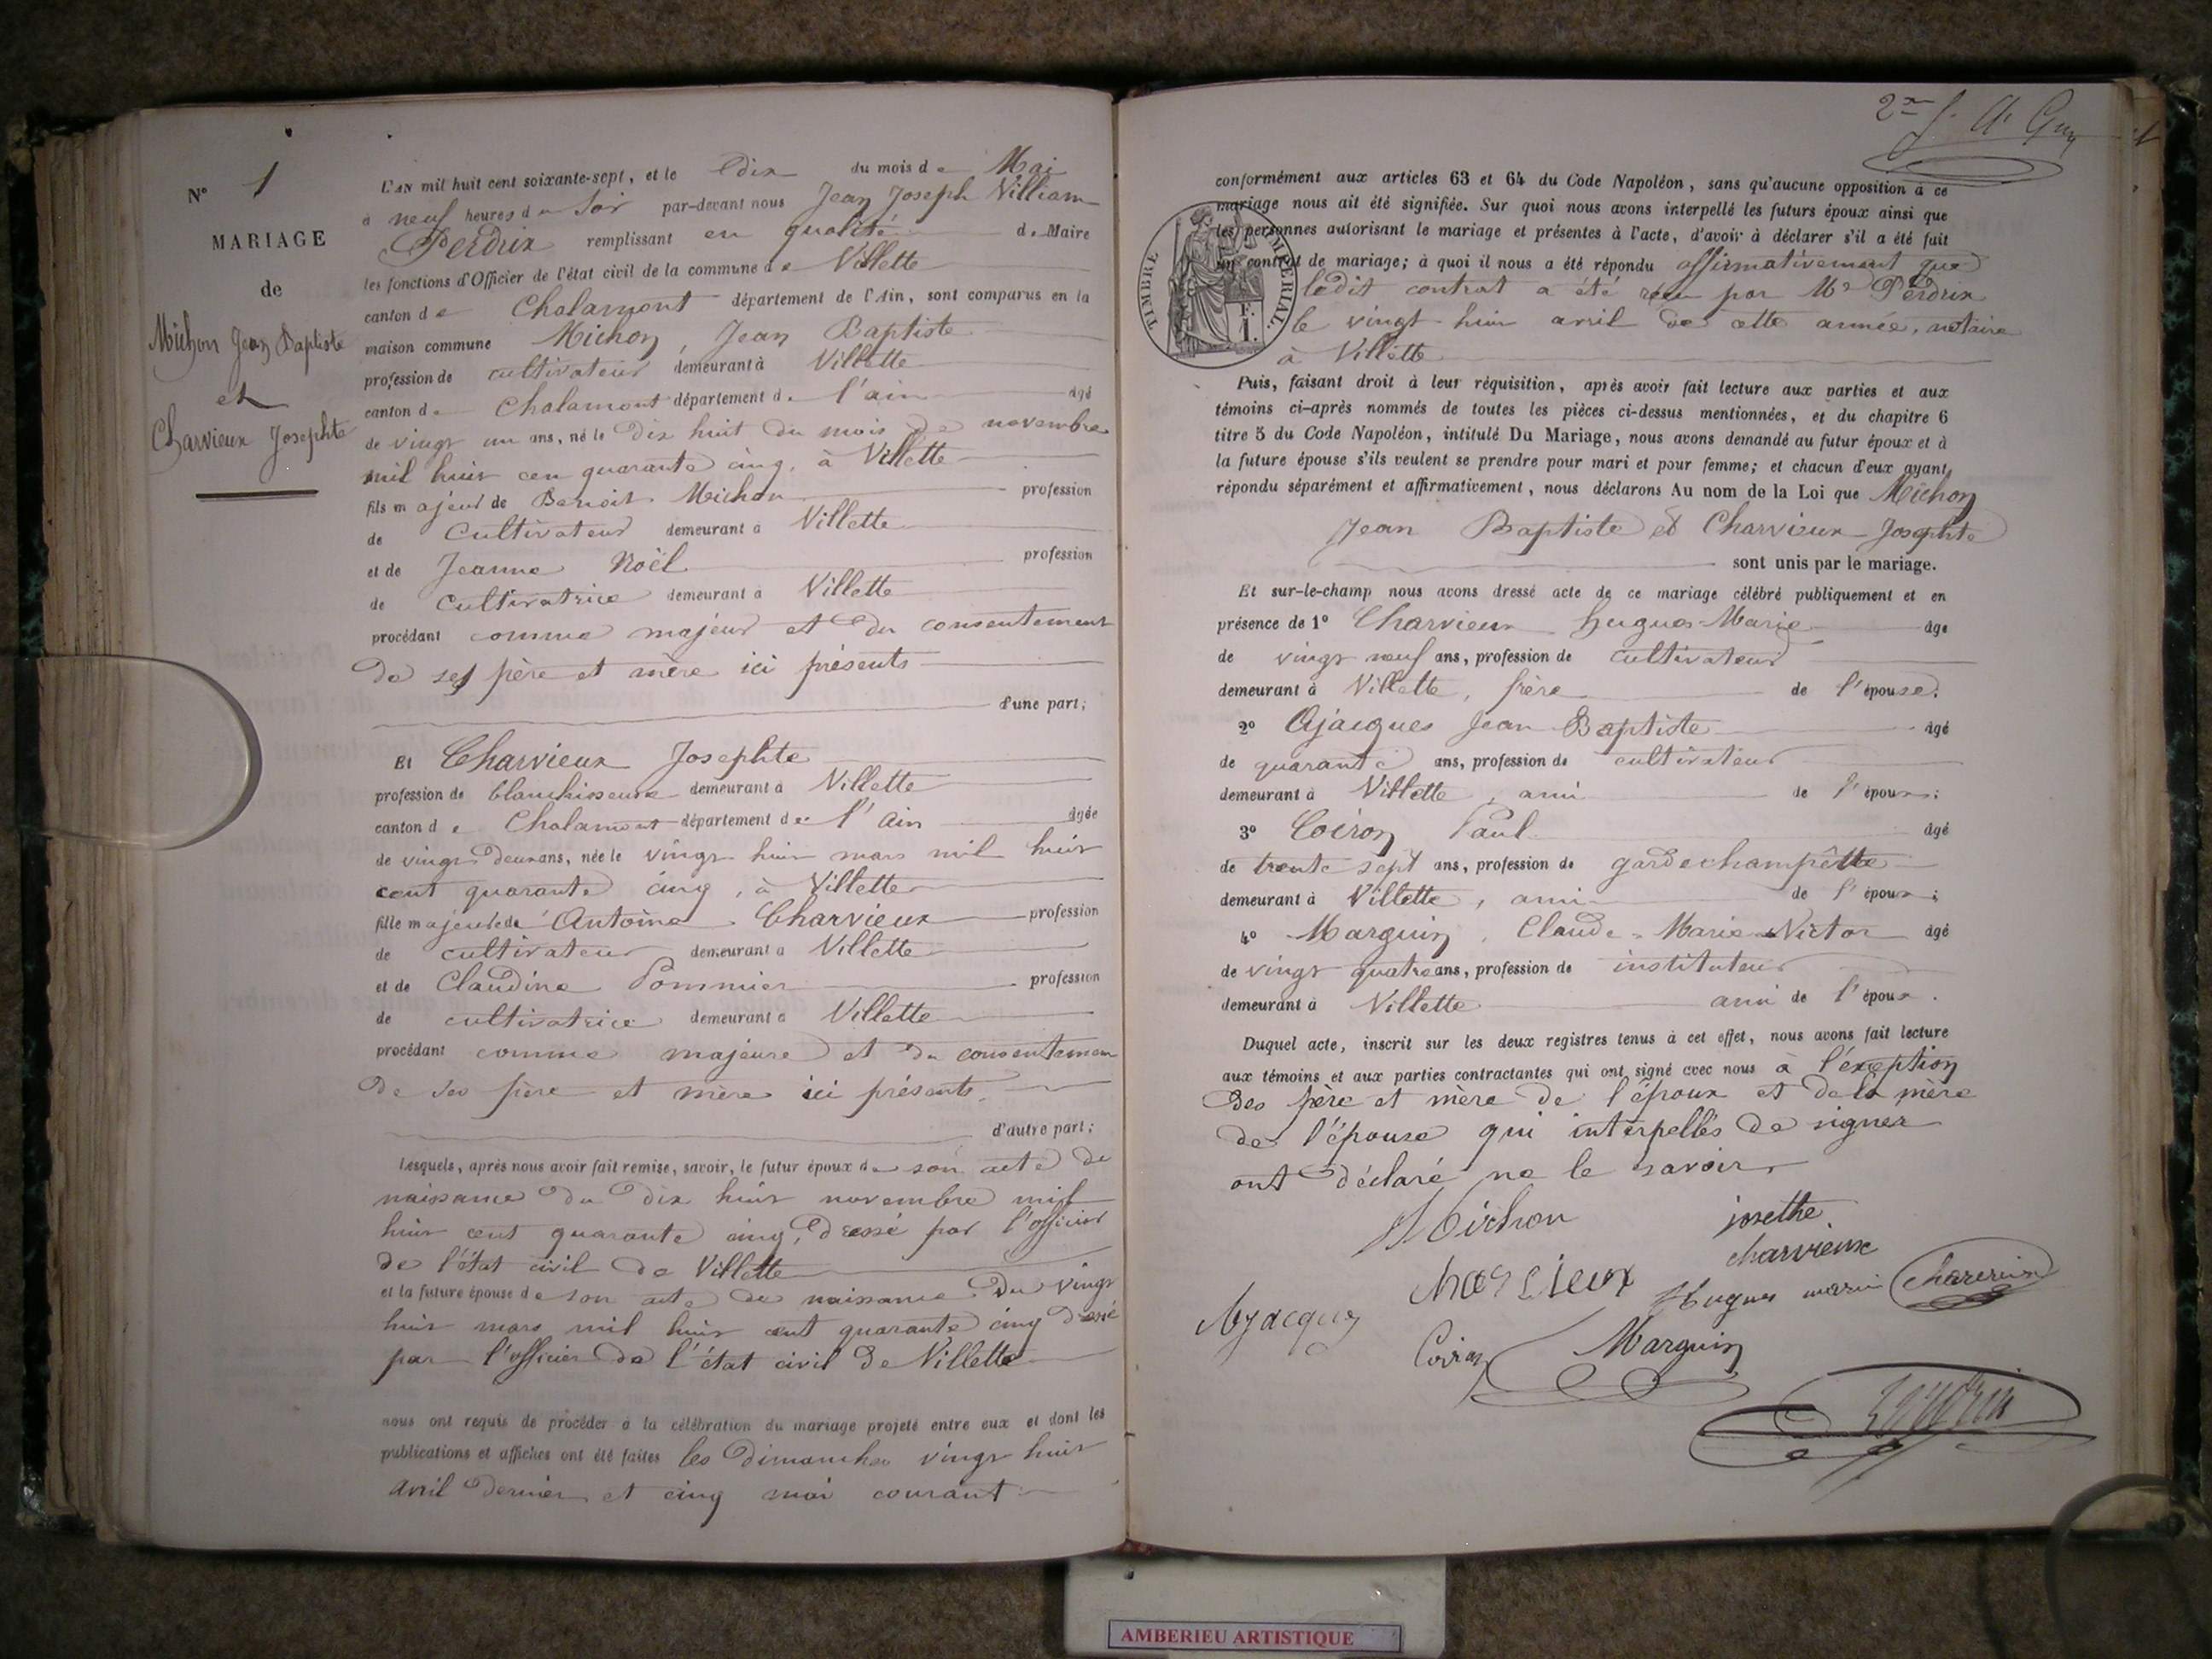 N° 1
MARIAGE
de
Michon Jean Baptiste
et
Charvieux Josephte
L'AN mil huit cent soixante-sept, et le dix du mois de Mai
à neuf heures du Soir par-devant nous Jean Joseph William
Perdrix remplissant en qualité de Maire
les fonctions d'Officier de l'état civil de la commune de Villette
canton de Chalamont département de l'Ain, sont comparus en la
maison commune Michon, Jean Baptiste
profession de cultivateur demeurant à Villette
canton de Chalamont département de l'ain âgé
de vingt un ans, né le Dix huit du mois de novembre
mil huit cen quarante cinq, à Villette
fils majeur de Benoit Michon profession
de Cultivateur demeurant à Villette
et de Jeanne Noël profession
de Cultivatrice demeurant à Villette
procédant comme majeur et du consentement
de ses père et mère ici présents
d'une part;
Et Charvieux Josephte
profession de blanchisseuse demeurant à Villette
canton de Chalamont département de l'Ain âgée
de vingt deux ans, née le vingt huit mars mil huit
cent quarante cinq, à Villette
fille majeure de Antoine Charvieux profession
de cultivateur demeurant à Villette
et de Claudine Pommier profession
de cultivatrice demeurant à Villette
procédant comme majeure et du consentemen
de ses père et mère ici présents.
d'autre part;
Lesquels, après nous avoir fait remise, savoir, le futur époux de son acte de
naissance du dix huit novembre mil
huit cent quarante cinq, dressé par l'officier
de l'état civil de Villette
et la future épouse de son acte de naissance du vingt
huit mars mil huit cent quarante cinq dressé
par l'officier de l'état civil de Villette
nous ont requis de procéder à la célébration du mariage projeté entre eux et dont les
publications et affiches ont été faites les dimanches vingt huit
avril dernier et cinq mai courant
2me f.
conformément aux articles 63 et 64 du Code Napoléon, sans qu'aucune opposition à ce
mariage nous ait été signifiée. Sur quoi nous avons interpellé les futurs époux ainsi que
les personnes autorisant le mariage et présentes à l'acte, d'avoir à déclarer s'il a été fait
un contrat de mariage; à quoi il nous a été répondu affirmativement que
ledit contrat a été reçu par Me Perdrix
le vingt-huit avril de cette année, notaire
à Villette
TIMBRE IMPÉRIAL
F.
1.
Puis, faisant droit à leur réquisition, après avoir fait lecture aux parties et aux
témoins ci-après nommés de toutes les pièces ci-dessus mentionnées, et du chapitre 6
titre 5 du Code Napoléon, intitulé Du Mariage, nous avons demandé au futur époux et à
la future épouse s'ils veulent se prendre pour mari et pour femme; et chacun d'eux ayant
répondu séparément et affirmativement, nous déclarons Au nom de la Loi que Michon
Jean Baptiste et Charvieux Josephte
sont unis par le mariage.
Et sur-le-champ nous avons dressé acte de ce mariage célébré publiquement et en
présence de 1° Charvieux Hugues-Marie âgé
de vingt neuf ans, profession de cultivateur
demeurant à Villette, frère de l'épouse.
2° Ajacques Jean Baptiste âgé
de quarante ans, profession de cultivateur
demeurant à Villette, ami de l'époux;
3° Coiron Paul âgé
de trente sept ans, profession de gardechampêtte
demeurant à Villette, ami de l'époux;
4° Marguin, Claude-Marie-Victor âgé
de vingt quatre ans, profession de instituteur
demeurant à Villette ami de l'époux.
Duquel acte, inscrit sur les deux registres tenus à cet effet, nous avons fait lecture
aux témoins et aux parties contractantes qui ont signé avec nous à l'exeption
des père et mère de l'époux et de la mère
de l'épouse qui interpellés de signer
ont déclaré ne le savoir.
Michon
josethe
charvieux
charvieux
Hugues marie Charvieux
Ajacques
Coiron
Marguin
Perdrix
AMBERIEU ARTISTIQUE